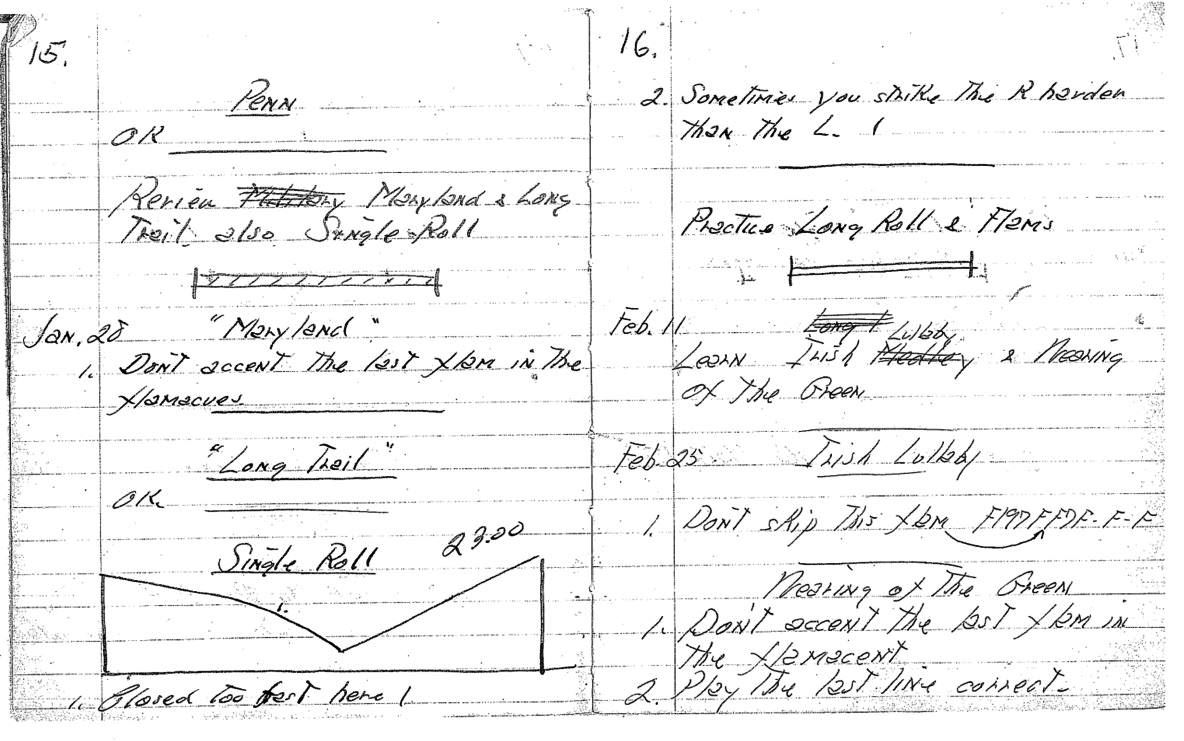 15.
Penn
OK
Review Military Maryland & Long
Trail also Single Roll
Jan. 28 "Maryland"
1. Don't accent the last flam in the
flamacues
"Long Trail"
OK.
Single Roll 23.00
1.
1. Closed too fast here!
16.
2. Sometimes you strike the R harder
than the L. !
Practice Long Roll & Flams
Feb. 11 Long
Lullaby
Learn Irish Medley & Wearing
of the Green
Feb. 25 Irish Lullaby
1. Don't skip this flam
Wearing of the Green
1. Don't accent the last flam in
the flamacent
2. Play the last line correct.